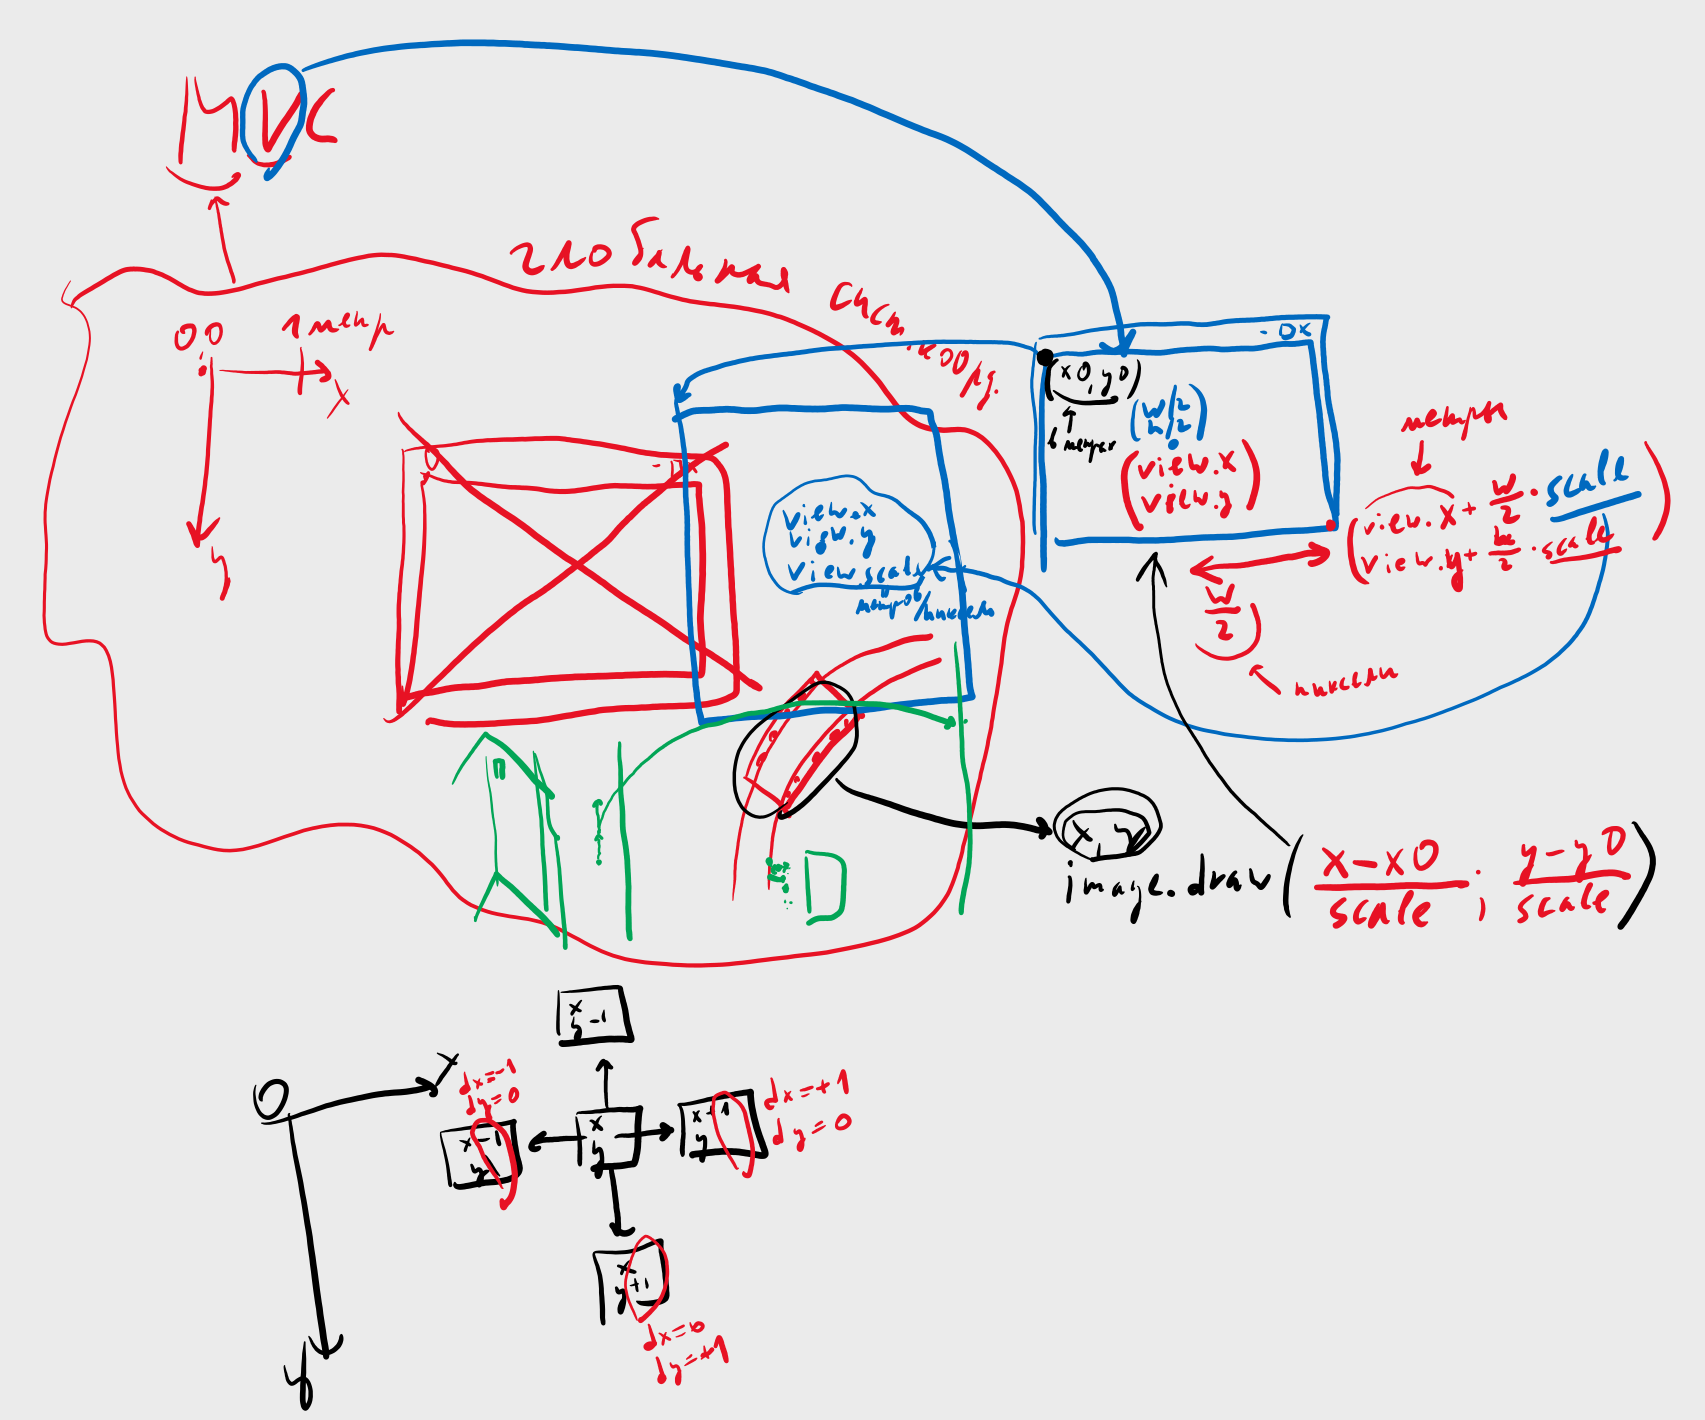 MVC
глобальная сист. коорд.
0,0
1 метр
x
y
view.x
view.y
view.scale
метров/пиксель
- □x
(x0, y0)
в метрах
(w/2
h/2)
(view.x
view.y)
метры
(view.x + w/2 · scale
view.y + h/2 · scale)
w/2
пиксели
x, y
image.draw(x-x0/scale ; y-y0/scale)
D
0
x
y
x
y-1
dx=-1
dy=0
x-1
y
x
y
x+1
y
dx=+1
dy=0
x
y+1
dx=0
dy=+1